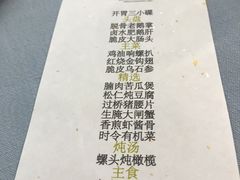 开胃三小碟
头盘
脱骨老鹅掌
卤水肥鹅肝
脆皮大肠头
主菜
鸡油响螺扒
红烧金钩翅
脆皮乌石参
精选
腩肉苦瓜煲
松仁炖豆腐
过桥猪腰片
生腌大闸蟹
香煎虾酱骨
时令有机菜
炖汤
螺头炖橄榄
主食